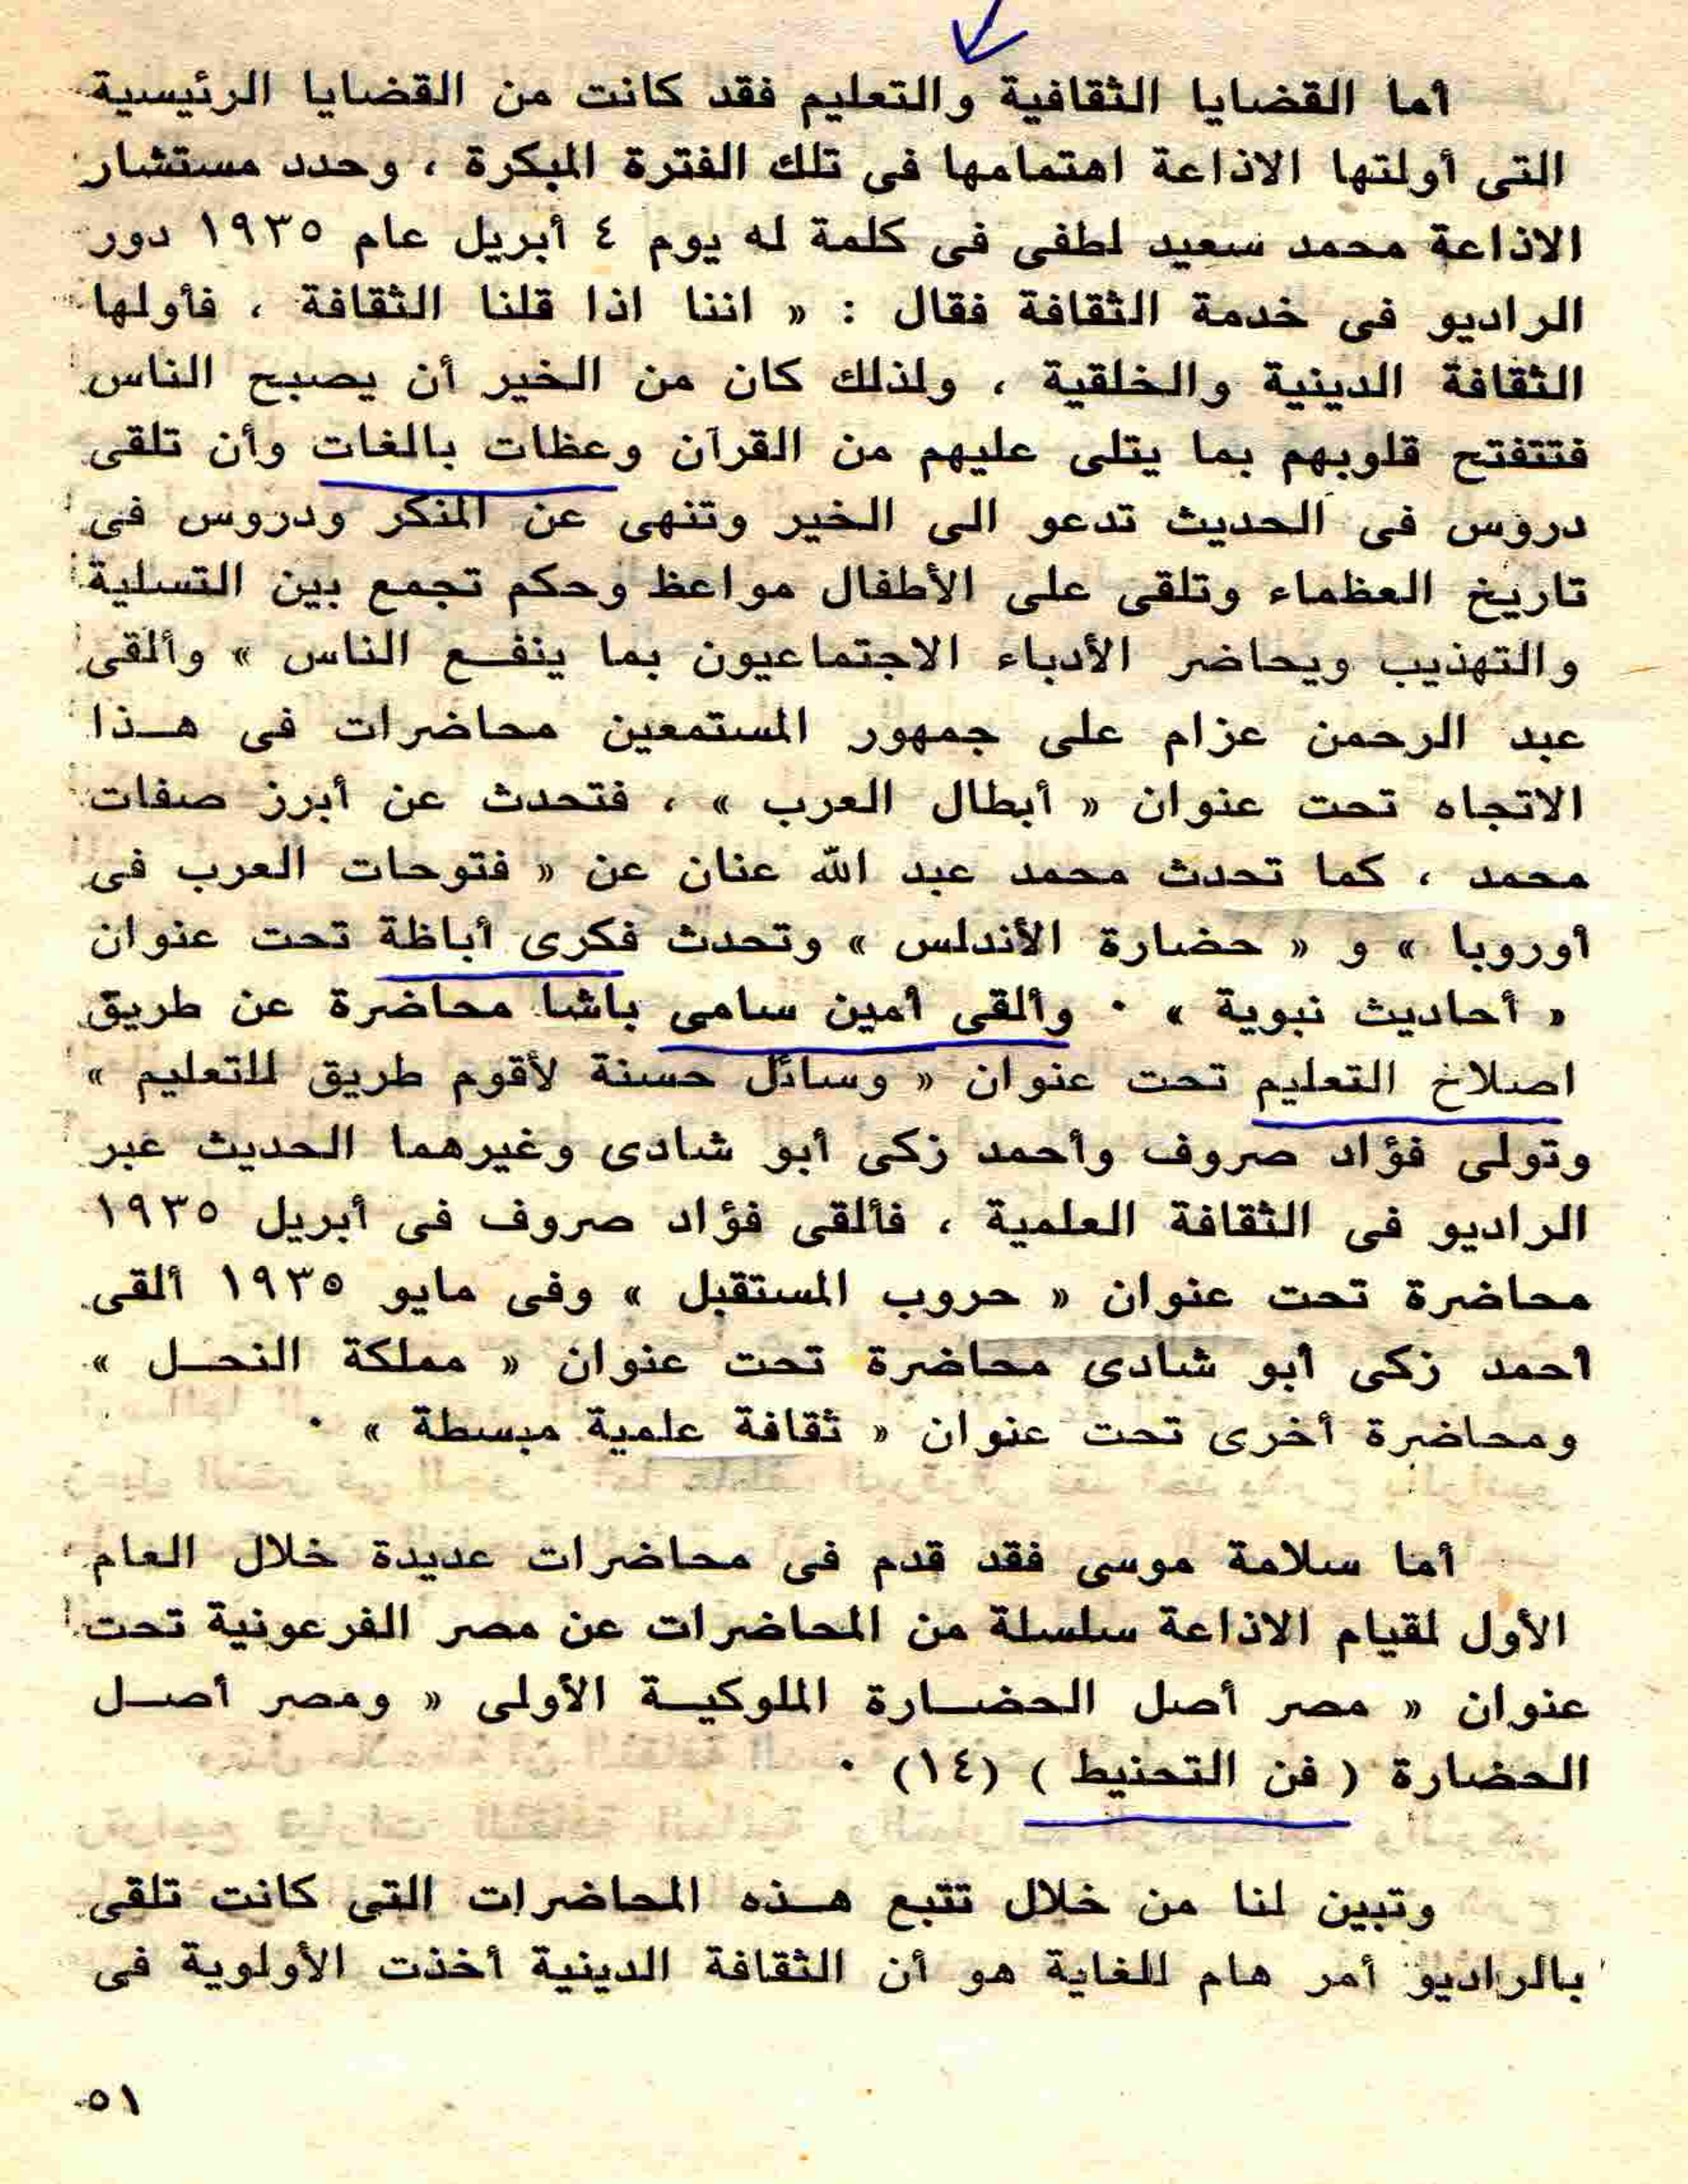 أما القضايا الثقافية والتعليم فقد كانت من القضايا الرئيسية
التى أولتها الاذاعة اهتمامها فى تلك الفترة المبكرة ، وحدد مستشار
الاذاعة محمد سعيد لطفى فى كلمة له يوم ٤ أبريل عام ١٩٣٥ دور
الراديو فى خدمة الثقافة فقال : « اننا اذا قلنا الثقافة ، فأولها
الثقافة الدينية والخلقية ، ولذلك كان من الخير أن يصبح الناس
فتتفتح قلوبهم بما يتلى عليهم من القرآن وعظات بالغات وأن تلقى
دروس فى الحديث تدعو الى الخير وتنهى عن المنكر ودروس فى
تاريخ العظماء وتلقى على الأطفال مواعظ وحكم تجمع بين التسلية
والتهذيب ويحاضر الأدباء الاجتماعيون بما ينفع الناس » وألقى
عبد الرحمن عزام على جمهور المستمعين محاضرات فى هذا
الاتجاه تحت عنوان « أبطال العرب » ، فتحدث عن أبرز صفات
محمد ، كما تحدث محمد عبد الله عنان عن « فتوحات العرب فى
أوروبا » و « حضارة الأندلس » وتحدث فكرى أباظة تحت عنوان
« أحاديث نبوية » ٠ وألقى أمين سامى باشا محاضرة عن طريق
اصلاخ التعليم تحت عنوان « وسائل حسنة لأقوم طريق للتعليم »
وتولى فؤاد صروف وأحمد زكى أبو شادى وغيرهما الحديث عبر
الراديو فى الثقافة العلمية ، فألقى فؤاد صروف فى أبريل ١٩٣٥
محاضرة تحت عنوان « حروب المستقبل » وفى مايو ١٩٣٥ ألقى
أحمد زكى أبو شادى محاضرة تحت عنوان « مملكة النحل »
ومحاضرة أخرى تحت عنوان « ثقافة علمية مبسطة » ٠
أما سلامة موسى فقد قدم فى محاضرات عديدة خلال العام
الأول لقيام الاذاعة سلسلة من المحاضرات عن مصر الفرعونية تحت
عنوان « مصر أصل الحضارة الملوكية الأولى « ومصر أصل
الحضارة ( فن التحنيط ) (١٤) ٠
وتبين لنا من خلال تتبع هذه المحاضرات التى كانت تلقى
بالراديو أمر هام للغاية هو أن الثقافة الدينية أخذت الأولوية فى
٥١